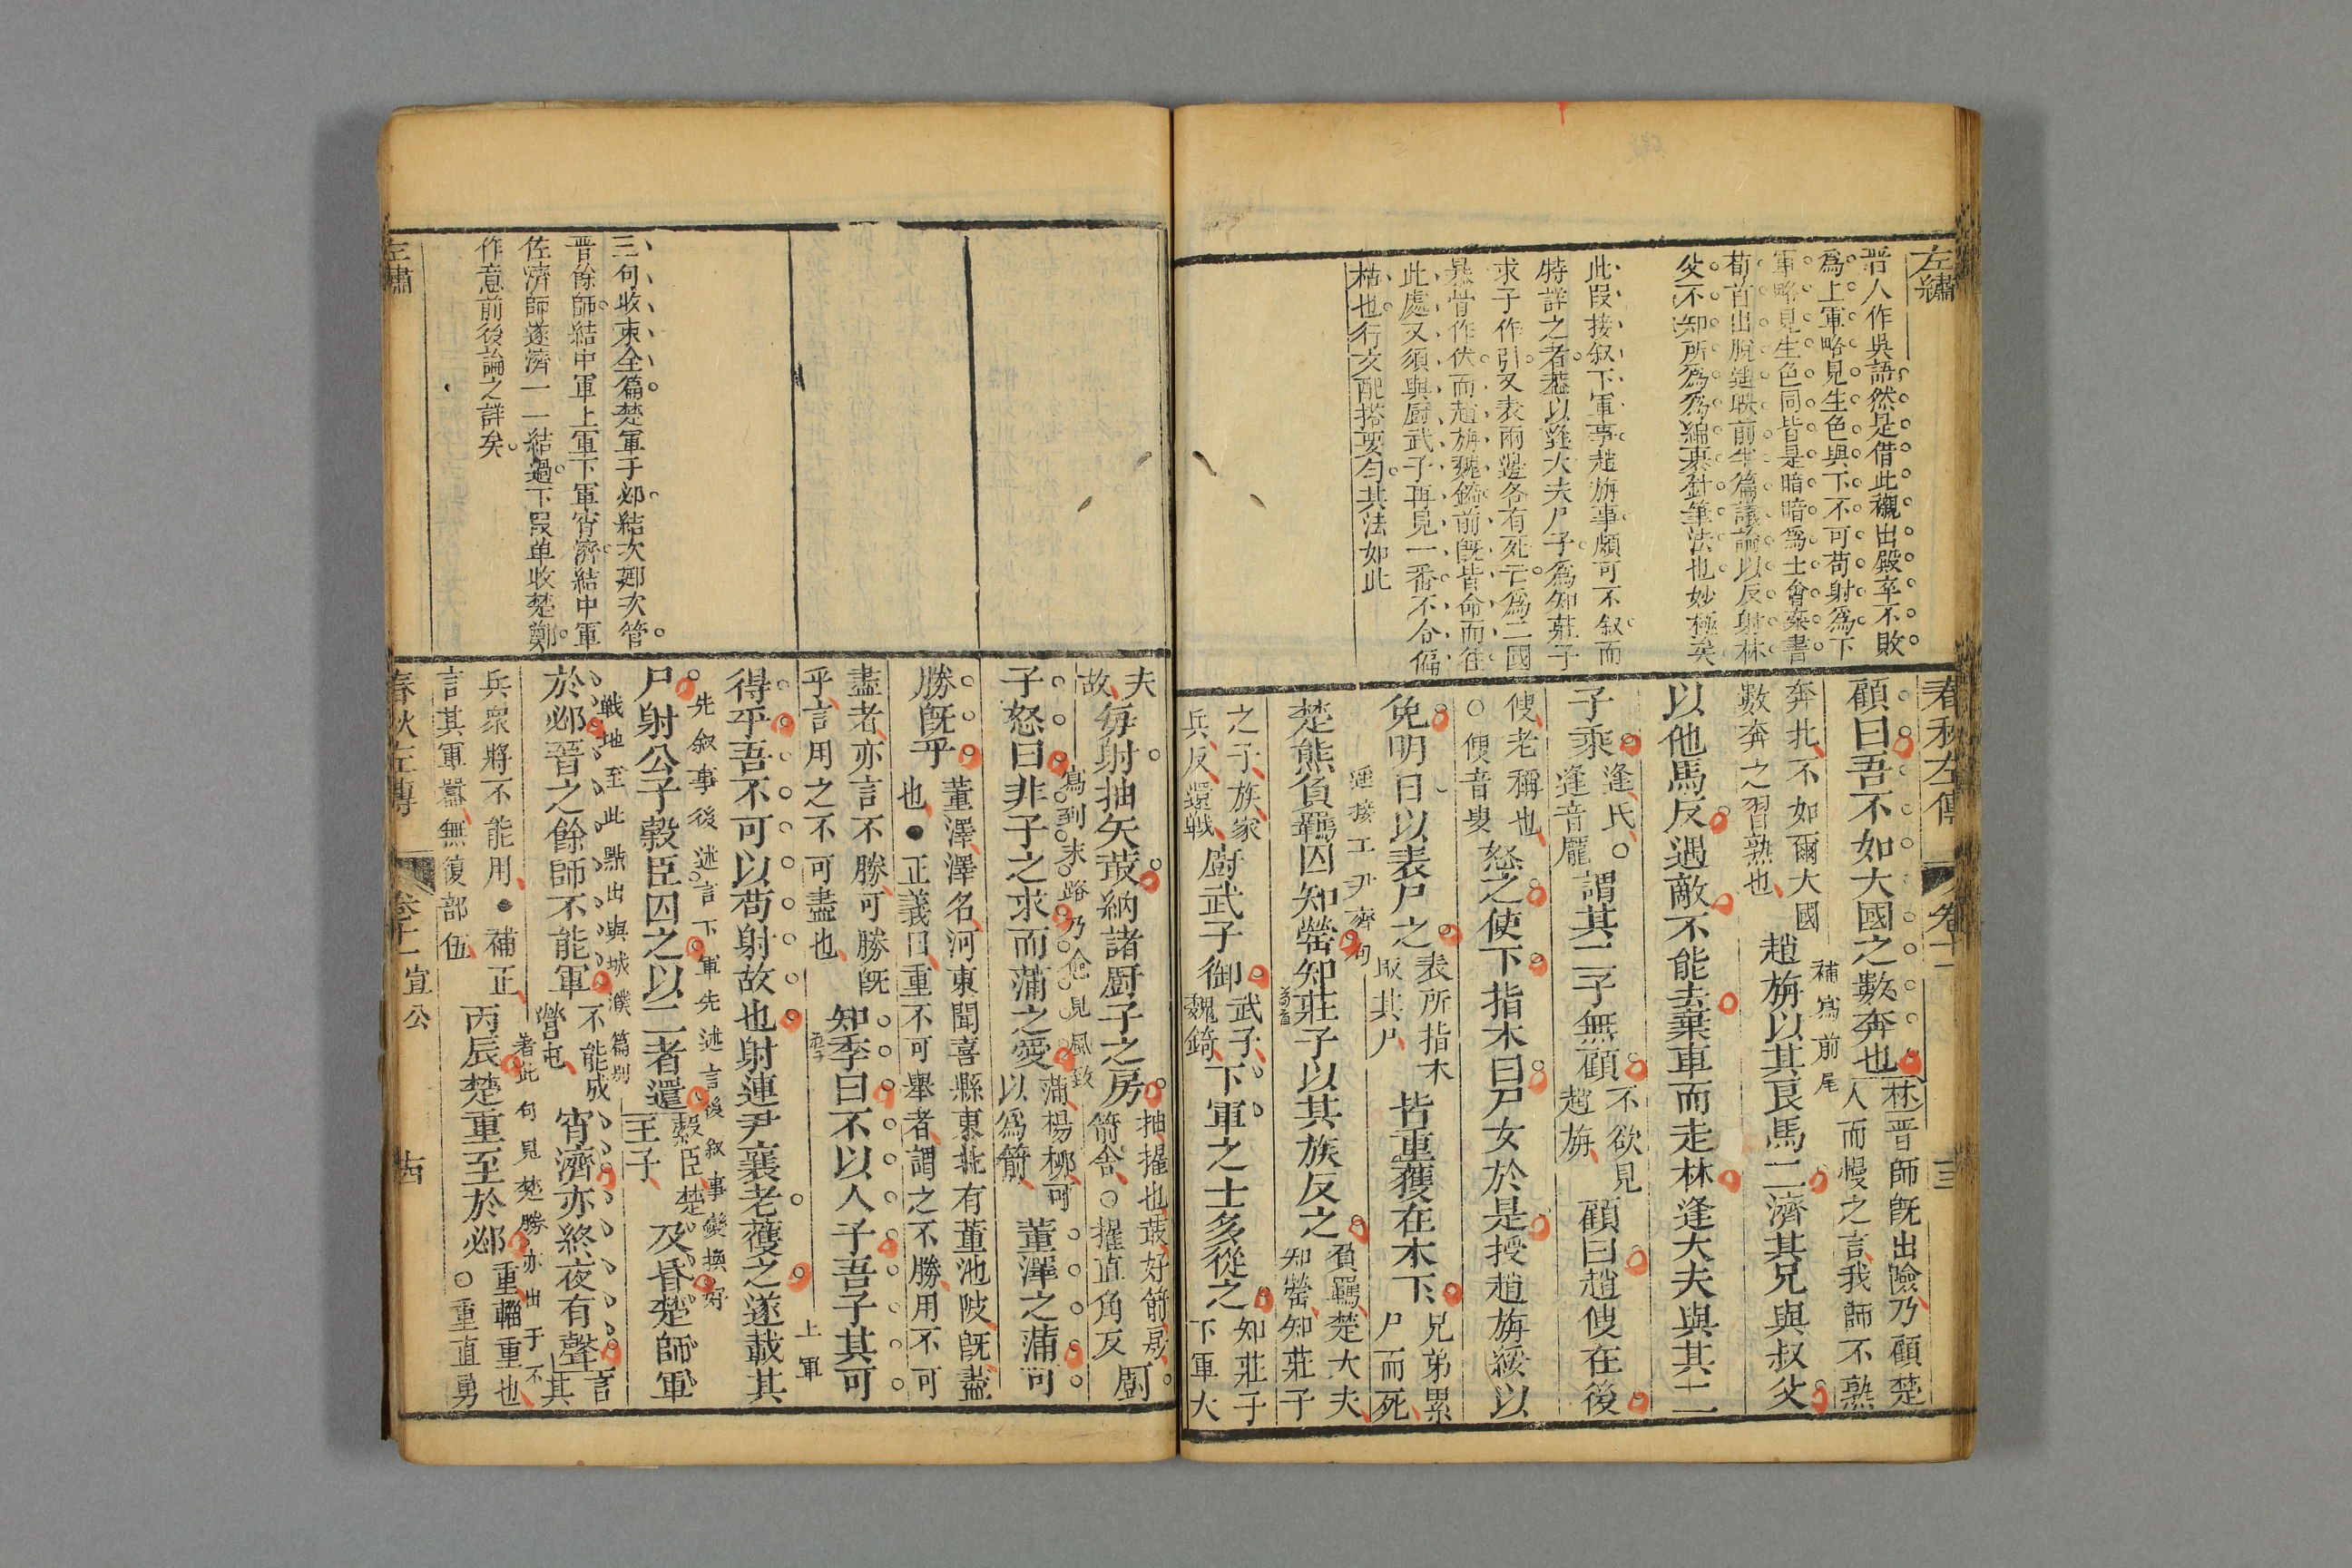 左繡
晉人作吳語然是借此襯出殿卒不敗
爲上軍略見生色與下不可苟射爲下
軍略見生色同皆是暗暗爲士會欒書
荀首出脫遥映前半篇議論以反射林
父不知所爲爲綿裏針筆法也妙極矣
此叚接叙下軍事趙旃事頗可不叙而
特詳之者葢以逢大夫尸子爲知莊子
求子作引又表兩邊各有死亡爲二國
暴骨作伏而趙旃魏錡前旣皆命而往
此處又須與厨武子再見一番不合偏
枯也行文配搭要勻其法如此
春秋左傳
卷十一
顧曰吾不如大國之數奔也
林晉師旣出險乃顧楚
人而慢之言我師不熟
奔北不如爾大國
數奔之習熟也
補寫前尾
趙旃以其良馬二濟其兄與叔父
以他馬反遇敵不能去棄車而走林逢大夫與其二
子乘
逢氏○
逢音龐
謂其二子無顧
不欲見
趙旃
顧曰趙傁在後
傁老稱也
○傁音叟
怒之使下指木曰尸女於是授趙旃綏以
免明日以表尸之
表所指木
取其尸
皆重獲在木下
兄弟累
尸而死
遥接工尹齊句
楚熊負羈囚知罃知莊子以其族反之
荀首
負羈楚大夫
知罃知莊子
之子族家
兵反還戰
厨武子御
武子
魏錡
下軍之士多從之
知莊子
下軍大
夫
故
每射抽矢菆納諸厨子之房
抽擢也菆好箭房
箭舍○擢直角反
厨
寫到末路乃益見風致
子怒曰非子之求而蒲之愛
蒲楊柳可
以爲箭
董澤之蒲可
勝旣乎
董澤澤名河東聞喜縣東北有董池陂旣盡
也●正義曰重不可舉者謂之不勝用不可
盡者亦言不勝可勝旣
乎言用之不可盡也
知季曰不以人子吾子其可
莊子
上軍
得乎吾不可以苟射故也射連尹襄老獲之遂載其
先叙事後述言下軍先述言後叙事變換好
尸射公子榖臣囚之以二者還
榖臣楚
王子
及昏楚師軍
戰地至此點出與城濮篇別
於邲晉之餘師不能軍
不能成
營屯
宵濟亦終夜有聲
言
其
兵衆將不能用●補正
言其軍囂無復部伍
著此句見楚勝亦出于不
丙辰楚重至於邲
重輜重也
○重直勇
三句收束全篇楚軍于邲結次郔次管
晉餘師結中軍上軍下軍宵濟結中軍
佐濟師遂濟一一結過下叚单收楚鄭
作意前後論之詳矣
左繡
春秋左傳
卷十一
宣公